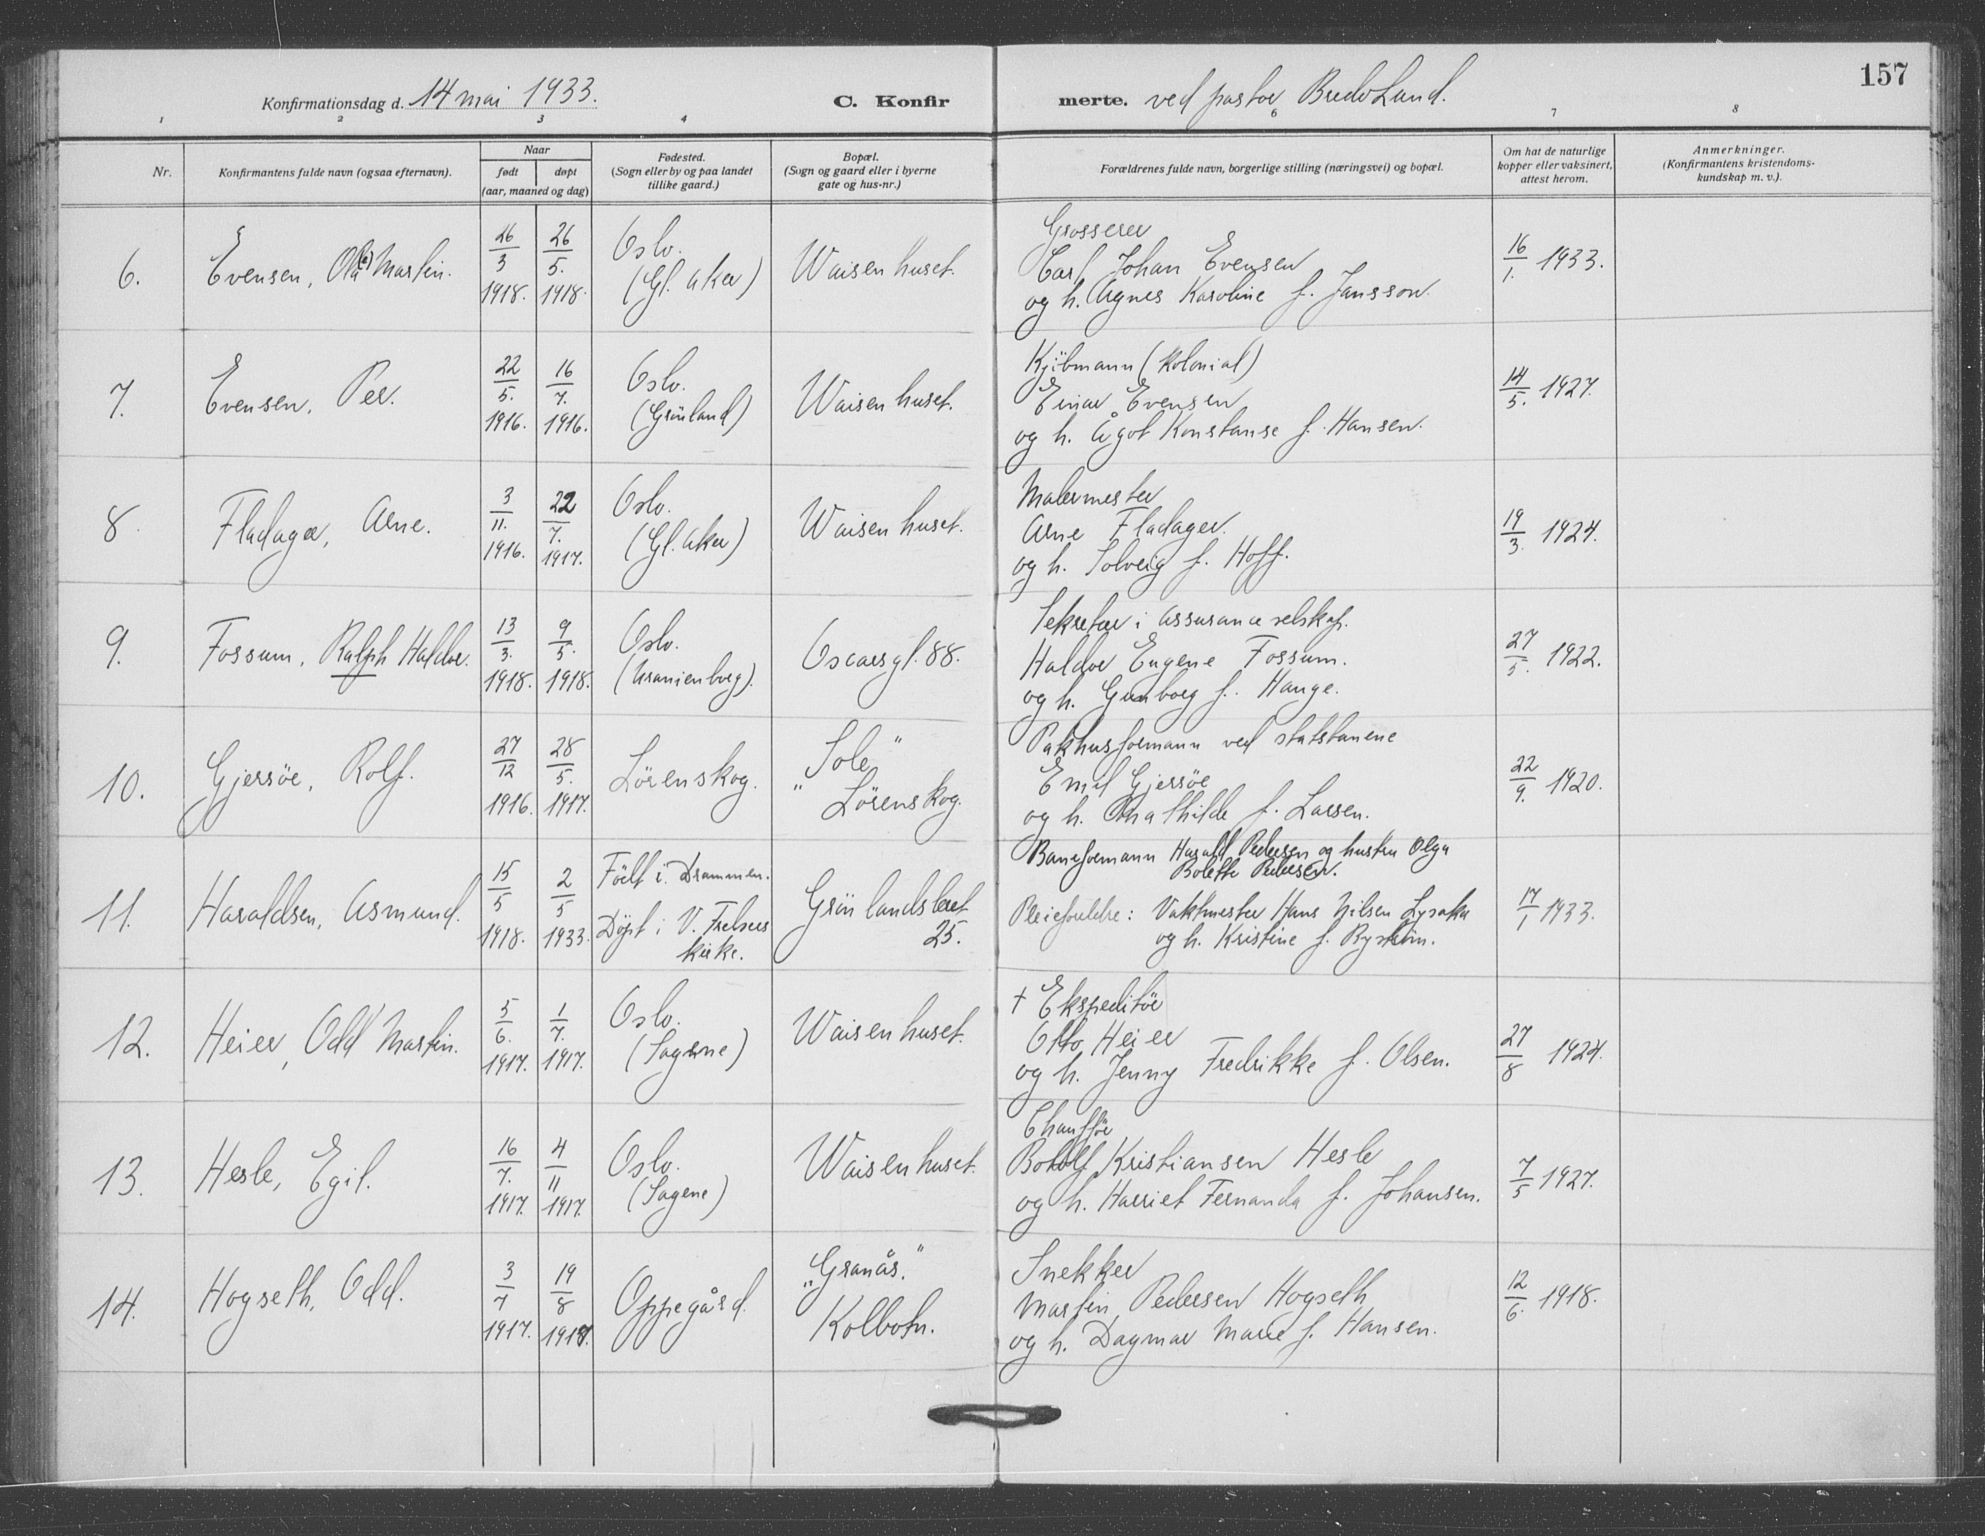 157
Konfirmationsdag d. 14 mai 1933. C. Konfirmerte. ved pastor Bredo Lund.
1 2 3 4 6 7 8
Nr.
Konfirmantens fulde navn (ogsaa efternavn).
Naar
født
døpt
(aar, maaned og dag)
Fødested.
(Sogn eller by og paa landet
tillike gaard.)
Bopæl.
(Sogn og gaard eller i byerne
gate og hus-nr.)
Forældrenes fulde navn, borgerlige stilling (næringsvei) og bopæl.
Om hat de naturlige
kopper eller vaksinert,
attest herom.
Anmerkninger.
(Konfirmantens kristendoms-
kundskap m. v.).
6. Evensen, Martin.
26/3 1918. 26/5. 1918.
Oslo.
(Gl. Aker)
Waisenhuset.
Grosserer
Carl Johan Evensen
og h. Agnes Karoline f. Jansson.
16/1. 1933.
7. Evensen, Per.
22/5. 1916. 16/7. 1916.
Oslo.
(Grönland)
Waisenhuset.
Kjöbmann (kolonial)
Einar Evensen
og h. Ågot Konstanse f. Hansen.
14/5. 1927.
8. Fladager, Arne.
3/11. 1916. 22/7. 1917.
Oslo.
(Gl. Aker)
Waisenhuset.
Malermester
Arne Fladager.
og h. Solveig f. Hoff.
19/3. 1924.
9. Fossum, Ralph Haldor.
13/3. 1918. 9/5. 1918.
Oslo.
(Uranienborg).
Oscarsgt. 88.
Sekretær i assuranceselskap.
Haldor Eugene Fossum.
og h. Gunborg f. Hauge.
27/5. 1922.
10. Gjersöe, Rolf.
27/12 1916. 28/5. 1917.
Lörenskog.
"Sole"
Lörenskog.
Pakhusformann ved statsbanene
Emil Gjersöe
og h. Mathilde f. Larsen.
22/9. 1920.
11. Haraldsen, Asmund.
15/5 1918. 2/5 1933.
Födt i Drammen.
Döpt i V. Frelsers
kirke.
Grönlandsleret
25.
Baneformann Harald Pedersen og hustru Olga
Bolette Pedersen.
Pleieforeldre: Vaktmester Hans Nilsen Lysaker
og h. Kristine f. Byström.
17/1 1933.
12. Heier, Odd Martin.
5/6. 1917. 1/7. 1917.
Oslo.
(Sagene)
Waisenhuset.
† Ekspeditör
Otto Heier
og h. Jenny Fredrikke f. Olsen.
27/8 1924.
13. Hesle, Egil.
16/7. 1917. 4/11 1917.
Oslo.
(Sagene)
Waisenhuset.
Chaufför
Botolf Kristiansen Hesle
og h. Harriet Fernanda f. Johansen.
7/5 1927.
14. Hogseth, Odd.
3/7 1917. 19/8 1917.
Oppegård.
"Granås."
Kolbotn.
Snekker
Martin Pedersen Hogseth
og h. Dagmar Marie f. Hansen.
12/6. 1918.